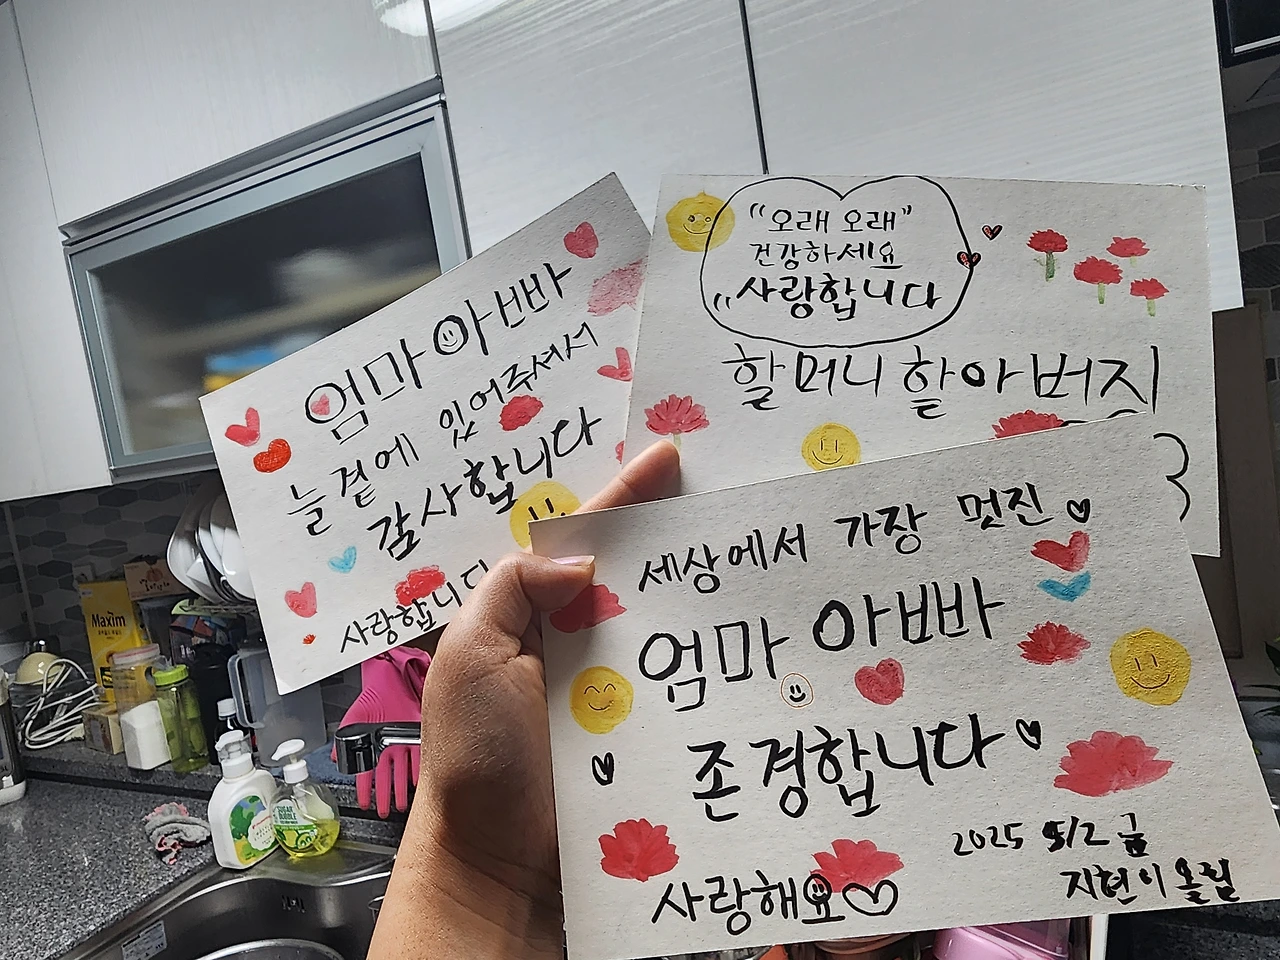 엄마 아빠
늘 곁에 있어주셔서
감사합니다
사랑합니다
"오래 오래"
건강하세요
"사랑합니다
할머니 할아버지
세상에서 가장 멋진
엄마 아빠
존경합니다
2025 5/2 금
지현이 올림
사랑해요
Maxim
SUGAR
BUBBLE